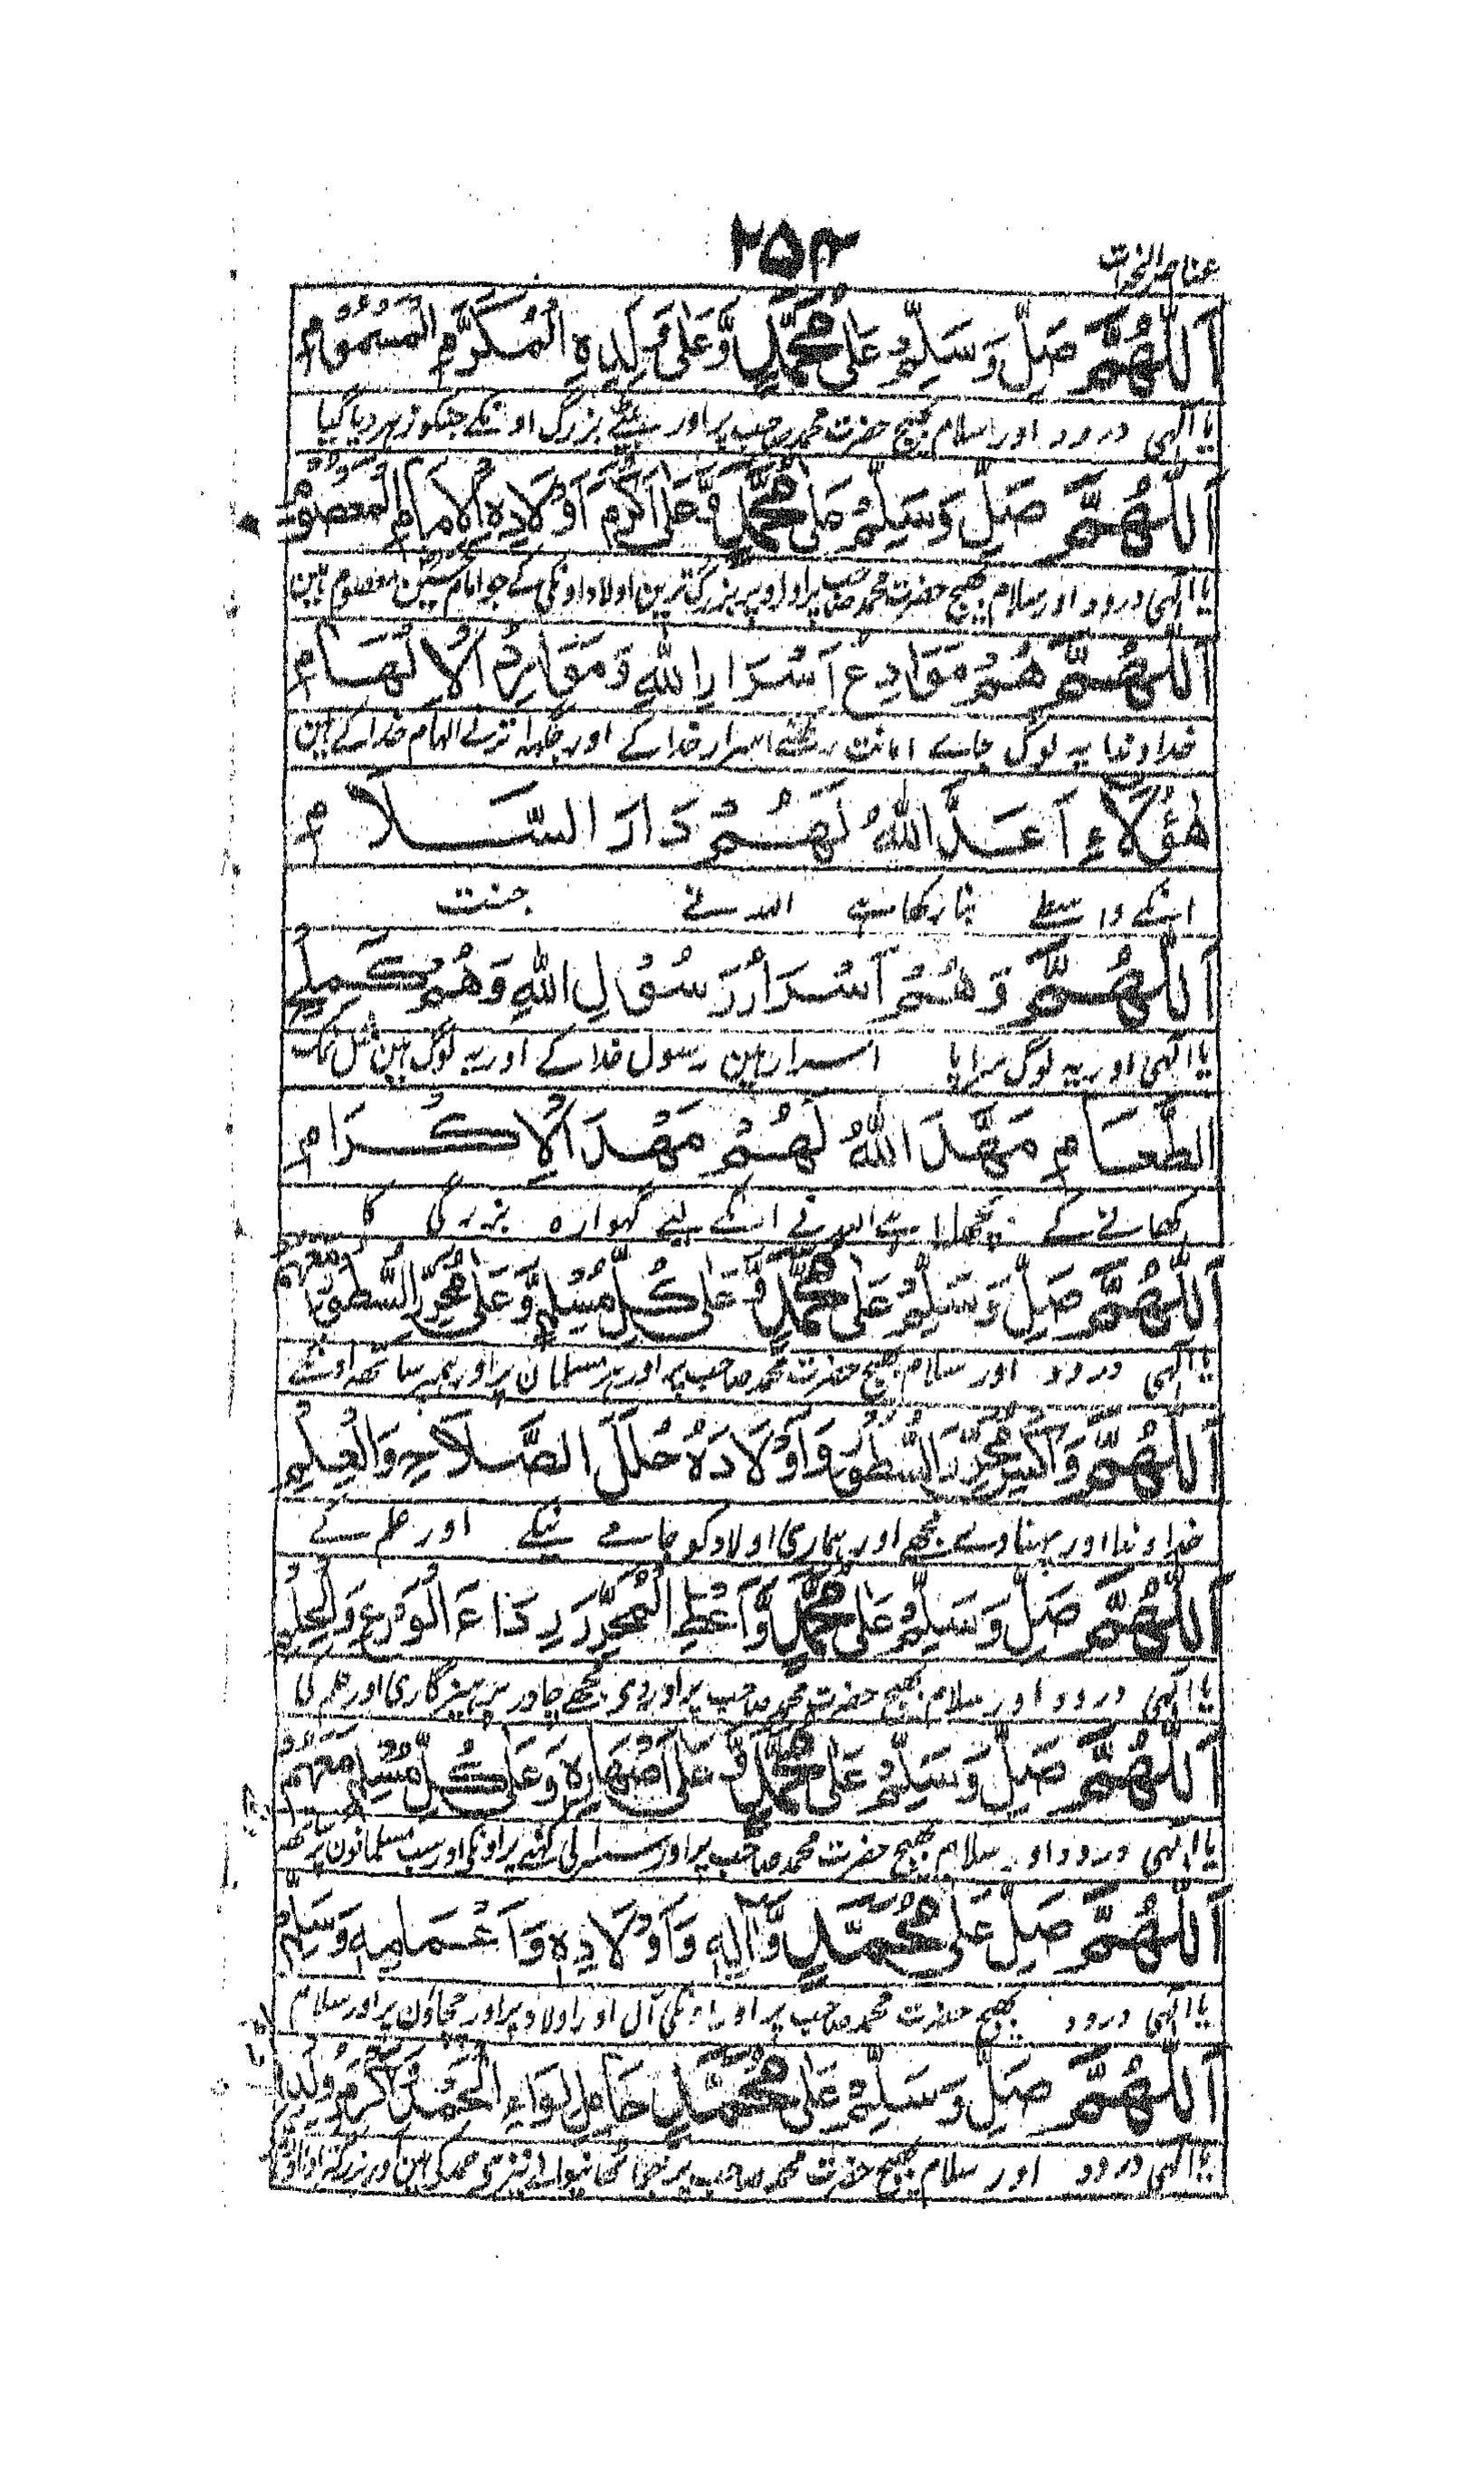 ۲۵۴
عناصر النجات
اَللّٰهُمَّ صَلِّ وَسَلِّمْ عَلٰى مُحَمَّدٍ وَّعَلٰى وَلَدِهِ الْمُكَرَّمِ الْمَسْمُوْمِ
یا الہی درود اور سلام بھیج حضرت محمد صاحب پر اور بیٹے بزرگ اونکے جنکو زہر دیا گیا
اَللّٰهُمَّ صَلِّ وَسَلِّمْ عَلٰى مُحَمَّدٍ وَّعَلٰى اَكْرَمِ اَوْلَادِهِ الْاِمَامِ الْمَعْصُوْمِ
یا الہی درود اور سلام بھیج حضرت محمد صاحب پر اور اوپر بزرگترین اولاد اونکی کے جو امام حسین معصوم ہین
اَللّٰهُمَّ هُمْ مَوَادِعُ اَسْرَارِ اللّٰهِ وَمَوَارِدُ الْاِلْهَامِ
خداوندا یہ لوگ جاے امانت رکھنے اسرار خدا کے اور جگہ اترنے الہام خدا کے ہین
هٰؤُلَاءِ اَعَدَّ اللّٰهُ لَهُمْ دَارَ السَّلَامِ
انکے واسطے بنا رکھا ہے اللہ نے جنت
اَللّٰهُمَّ وَهُمْ اَسْرَارُ رَسُوْلِ اللّٰهِ وَهُمْ كَمِلْحِ
یا الہی اور یہ لوگ سراپا اسرار ہین رسول خدا کے اور یہ لوگ ہین مثل نمک
الطَّعَامِ مَهَّدَ اللّٰهُ لَهُمْ مَهْدَ الْاِكْرَامِ
کھانے کے بچھایا ہے اللہ نے انکے لیے گہوارہ بزرگی کا
اَللّٰهُمَّ صَلِّ وَسَلِّمْ عَلٰى مُحَمَّدٍ وَّعَلٰى كُلِّ مُسْلِمٍ وَّعَلٰى مُحَرِّرِ السُّطُوْرِ مَعَهُمْ
یا الہی درود اور سلام بھیج حضرت محمد صاحب پر اور ہر مسلمان پر اور مجھ پر ساتھ اونکے
اَللّٰهُمَّ وَاكْسُ مُحَرِّرَ السُّطُوْرِ وَاَوْلَادَهُ حُلَلَ الصَّلَاحِ وَالْعِلْمِ
خداوندا اور پہنا دے مجھے اور ہماری اولاد کو جامے نیکے اور علم کے
اَللّٰهُمَّ صَلِّ وَسَلِّمْ عَلٰى مُحَمَّدٍ وَّاَعْطِ الْمُحَرِّرَ رِدَاءَ الْوَرَعِ وَالْحِلْمِ
یا الہی درود اور سلام بھیج حضرت محمد صاحب پر اور دی مجھے چادر پرہیزگاری اور حلم کی
اَللّٰهُمَّ صَلِّ وَسَلِّمْ عَلٰى مُحَمَّدٍ وَّعَلٰى اَصْهَارِهِ وَعَلٰى كُلِّ مُسْلِمٍ مَعَهُمْ
یا الہی درود اور سلام بھیج حضرت محمد صاحب پر اور سسرالی کنبے پر اونکی اور سب مسلمانون پر
اَللّٰهُمَّ صَلِّ عَلٰى مُحَمَّدٍ وَّاٰلِهِ وَاَوْلَادِهِ وَاَعْمَامِهِ وَسَلِّمْ
یا الہی درود بھیج حضرت محمد صاحب پر اور اونکی آل اور اولاد پر اور چچاؤن پر اور سلام
اَللّٰهُمَّ صَلِّ وَسَلِّمْ عَلٰى مُحَمَّدٍ حَامِلِ لِوَاءِ الْحَمْدِ
یا الہی درود اور سلام بھیج حضرت محمد صاحب پر